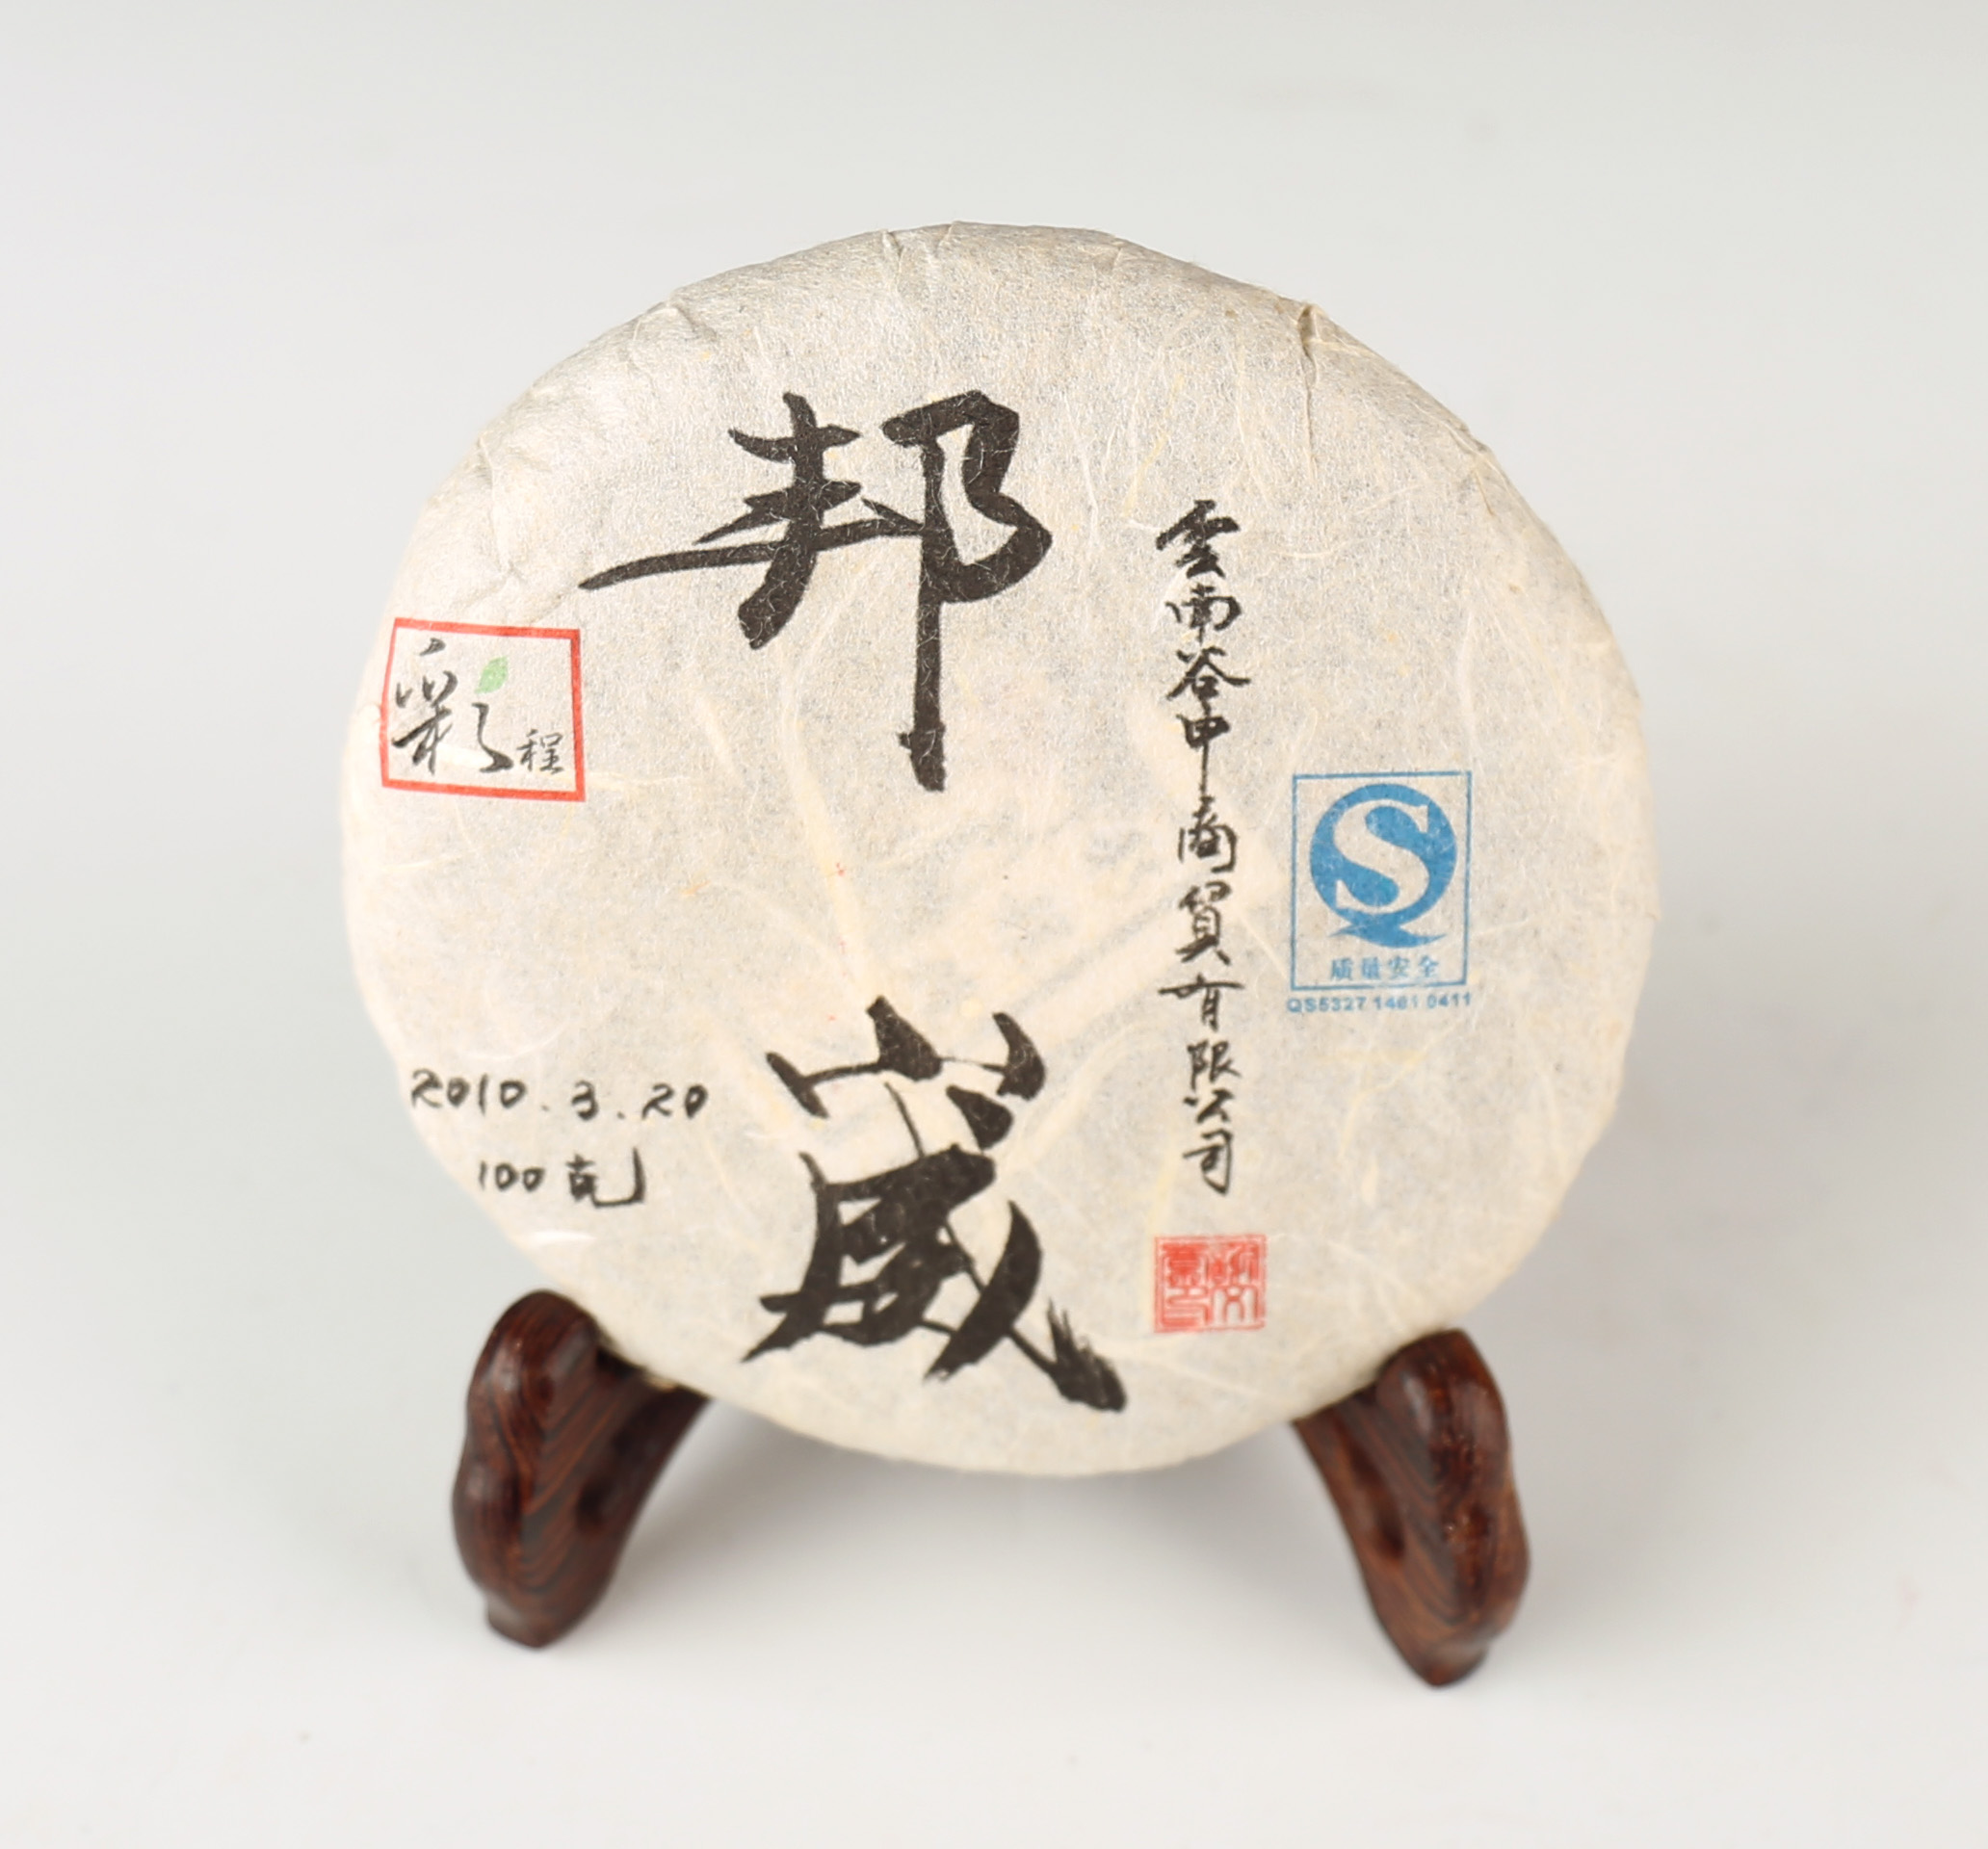 邦崴
雲南谷甲商貿有限公司
彩程
质量安全
QS5327 1461 0411
2010.3.20
100克